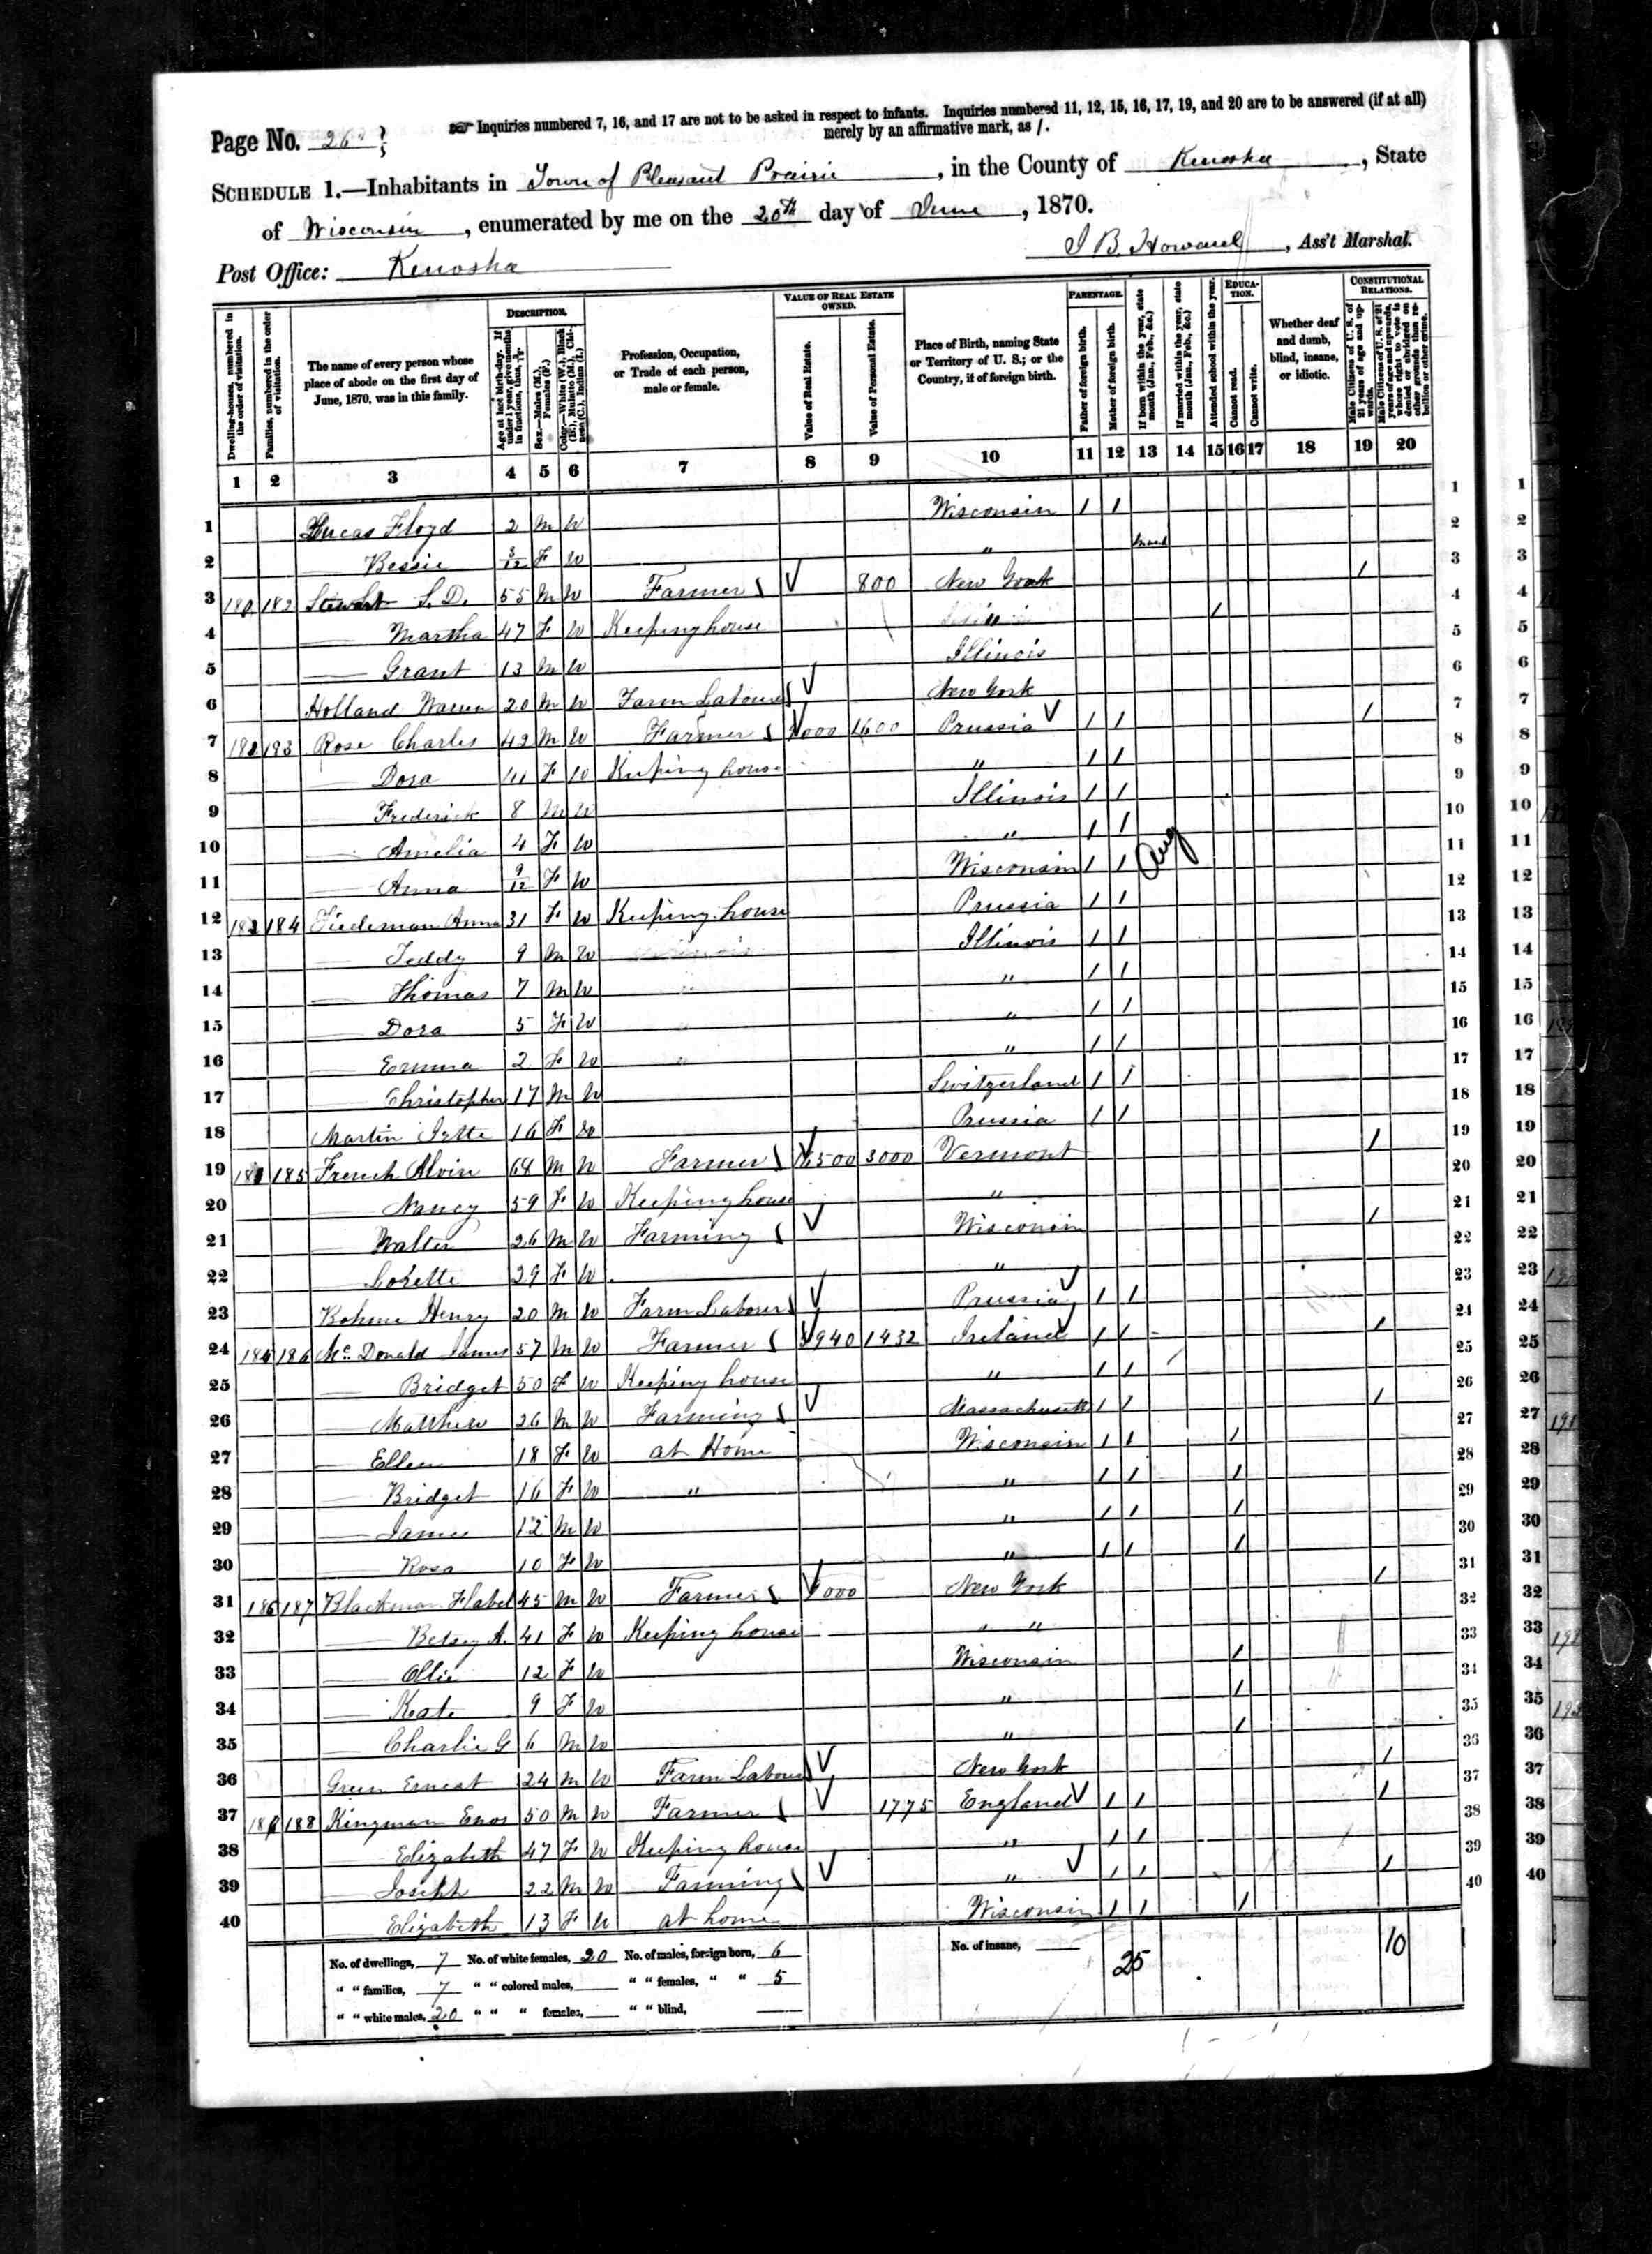 Page No. 26
Inquiries numbered 7, 16, and 17 are not to be asked in respect to infants. Inquiries numbered 11, 12, 15, 16, 17, 19, and 20 are to be answered (if at all)
merely by an affirmative mark, as /.
SCHEDULE 1.—Inhabitants in Town of Pleasant Prairie, in the County of Kenosha, State
of Wisconsin, enumerated by me on the 20th day of June, 1870.
Post Office: Kenosha
J B. Howard, Ass't Marshal.
Dwelling-houses, numbered in the order of visitation.
Families, numbered in the order of visitation.
The name of every person whose place of abode on the first day of June, 1870, was in this family.
DESCRIPTION.
Age at last birth-day. If under 1 year, give months in fractions, thus, 3/12.
Sex.—Males (M.), Females (F.)
Color.—White (W.), Black (B.), Mulatto (M.), Chinese (C.), Indian (I.)
Profession, Occupation, or Trade of each person, male or female.
VALUE OF REAL ESTATE OWNED.
Value of Real Estate.
Value of Personal Estate.
Place of Birth, naming State or Territory of U. S.; or the Country, if of foreign birth.
PARENTAGE.
Father of foreign birth.
Mother of foreign birth.
If born within the year, state month (Jan., Feb., &c.)
If married within the year, state month (Jan., Feb., &c.)
Attended school within the year.
EDUCATION.
Cannot read.
Cannot write.
Whether deaf and dumb, blind, insane, or idiotic.
CONSTITUTIONAL RELATIONS.
Male Citizens of U. S. of 21 years of age and upwards.
Male Citizens of U. S. of 21 years of age and upwards, whose right to vote is denied or abridged on other grounds than rebellion or other crime.
1 2 3 4 5 6 7 8 9 10 11 12 13 14 15 16 17 18 19 20
1 Lucas Floyd 2 M W Wisconsin / / 1
2 — Bessie 3/12 F W " 2
3 182 Stewart S. D. 55 M W Farmer 800 New York / 3
4 — Martha 47 F W Keeping house " 4
5 — Grant 13 M W Illinois / 5
6 Holland Warren 20 M W Farm Laborer New York 6
7 183 Rose Charles 42 M W Farmer 1600 Prussia / / / 7
8 — Dora 41 F W Keeping house " / / 8
9 — Frederick 8 M W Illinois / / 9
10 — Amelia 4 F W " / / 10
11 — Anna 9/12 F W Wisconsin / / Aug 11
12 184 Tiedeman Anna 31 F W Keeping house Prussia / / 12
13 — Teddy 9 M W Illinois / / 13
14 — Thomas 7 M W " / / 14
15 — Dora 5 F W " / / 15
16 — Emma 2 F W " / / 16
17 — Christopher 17 M W Switzerland / / 17
18 Martin 16 F W Prussia / / 18
19 185 French Alvin 68 M W Farmer 3000 Vermont / 19
20 — Nancy 59 F W Keeping house " 20
21 — Walter 26 M W Farming Wisconsin / 21
22 — Lorette 29 F W " 22
23 Bohme Henry 20 M W Farm Laborer Prussia / / 23
24 186 Mc Donald James 57 M W Farmer 1432 Ireland / / / 24
25 — Bridget 50 F W Keeping house " / / 25
26 — Matthew 26 M W Farming Massachusetts / / / 26
27 — Ellen 18 F W at Home Wisconsin / / / 27
28 — Bridget 16 F W " " / / / 28
29 — James 12 M W " / / / 29
30 — Rosa 10 F W " / / / 30
31 186 187 Blackman Flabel 45 M W Farmer New York / 31
32 — Betsey A. 41 F W Keeping house " " 32
33 — Ollie 12 F W Wisconsin / 33
34 — Kate 9 F W " / 34
35 — Charlie G 6 M W " / 35
36 Green Ernest 24 M W Farm Laborer New York / 36
37 188 Kingman Enos 50 M W Farmer 1775 England / / / 37
38 — Elizabeth 47 F W Keeping house " / / 38
39 — Joseph 22 M W Farming " / / / 39
40 — Elizabeth 13 F W at home Wisconsin / / / 40
No. of dwellings, 7 No. of white females, 20 No. of males, foreign born, 6 No. of insane, 25 10
" " families, 7 " " colored males, " " females, " " 5
" " white males, 20 " " " females, " " blind,